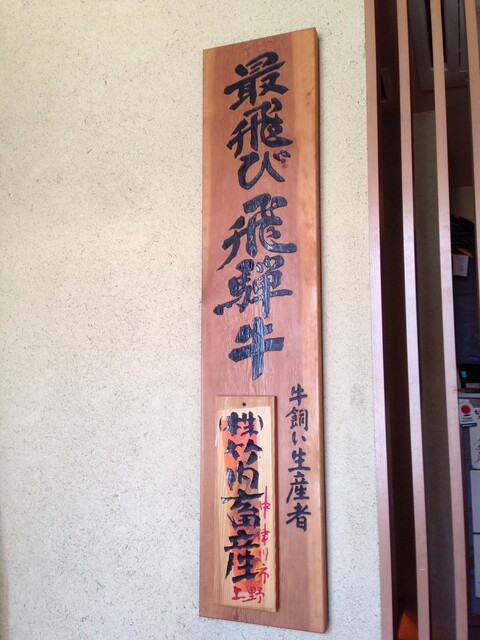 最飛び飛騨牛
牛飼い生産者
(株)竹内畜産
中津川市
上野